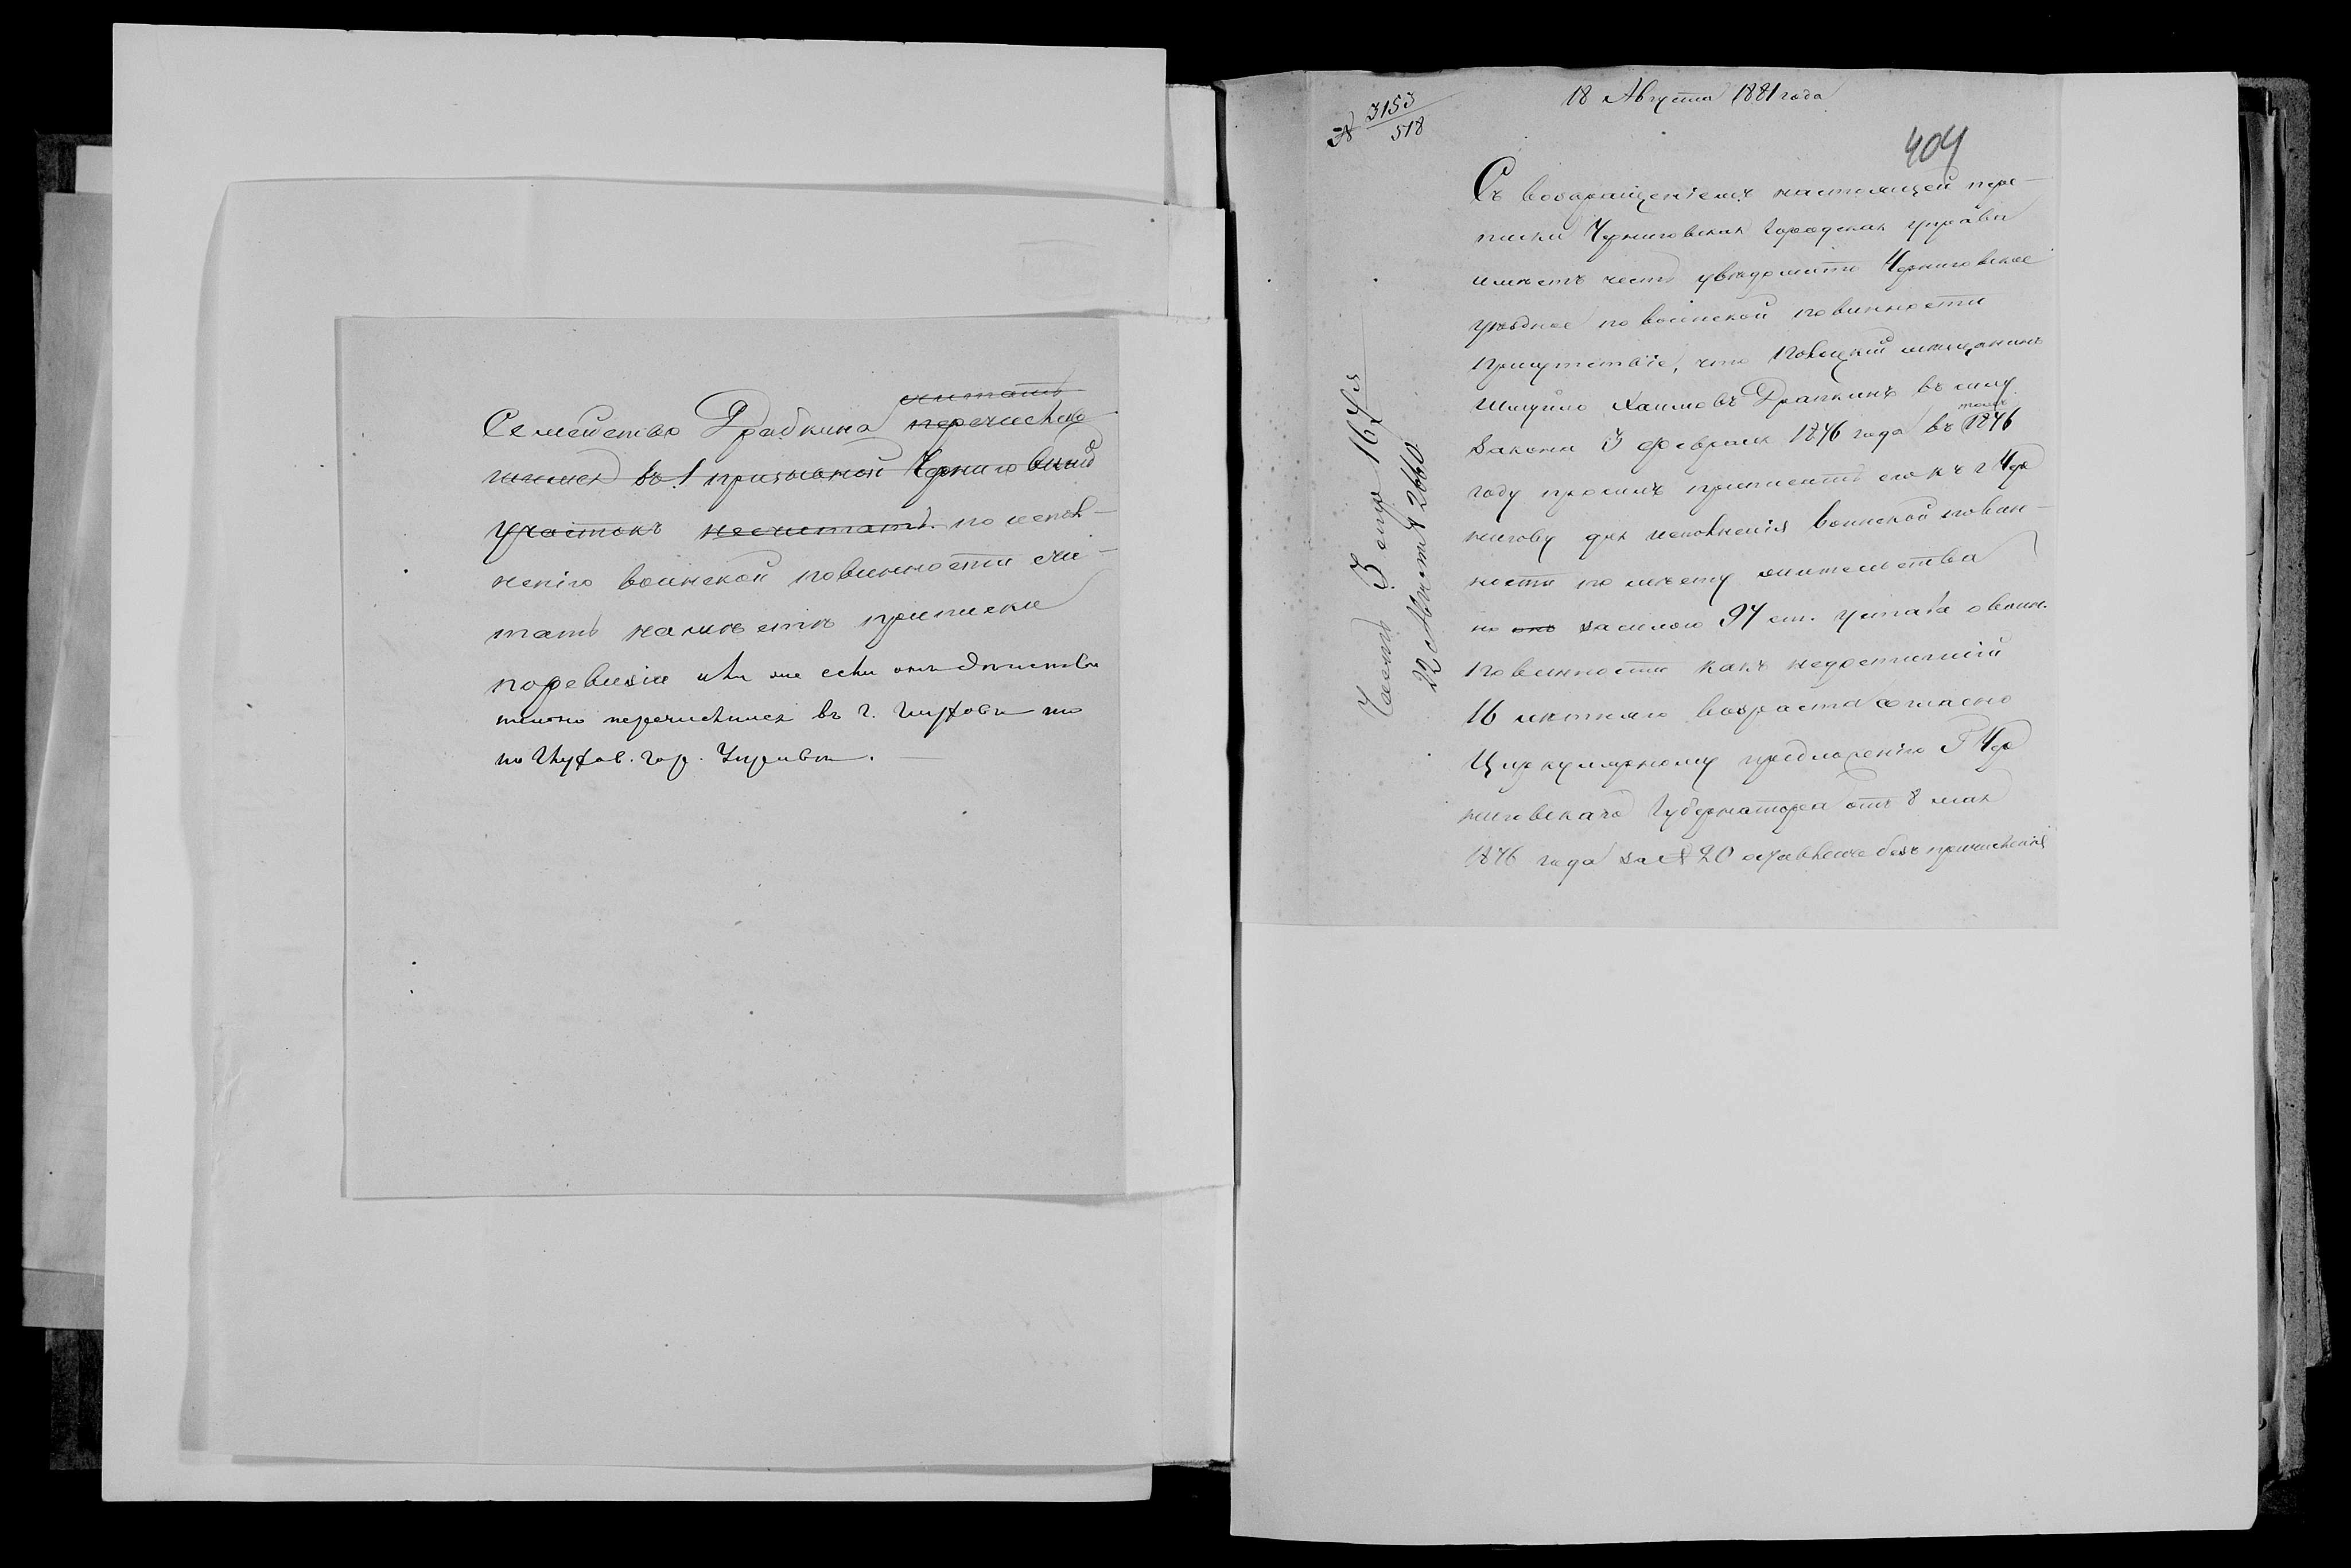 считать
Семейство Драбкина перечислив
шимся въ 1 призывной Черниговскій
участокъ несчитать. по испол-
ненію воинской повинности счи-
тать на мѣстѣ приписки
по ревизіи или же если онъ дѣйстви
тельно перечислился въ г. Глуховъ то
по Глухов. гор. Управѣ.
18 Августа 1881 года
№ 3153
518
404
Съ возвращеніемъ настоящей пере-
писки Черниговская Городская управа
имѣетъ честь увѣдомить Черниговское
уѣздное по воинской повинности
присутствіе, что мѣщанинъ
Хаимовъ Драпкинъ въ силу
закона 3 февраля 1876 года въ томъ 1876
году просилъ приписать его къ г Чер
нигову для исполнения воинской повин-
ности по мѣсту жительства
но онъ за силою 97 ст. устава о воин.
повинности какъ недостигшій
16 лѣтняго возраста согласно
Циркулярному предложенію Г Чер
ниговскаго Губернатора отъ 8 мая
1876 года за № 20 оставленъ безъ причисленія
22 Августа № 2660